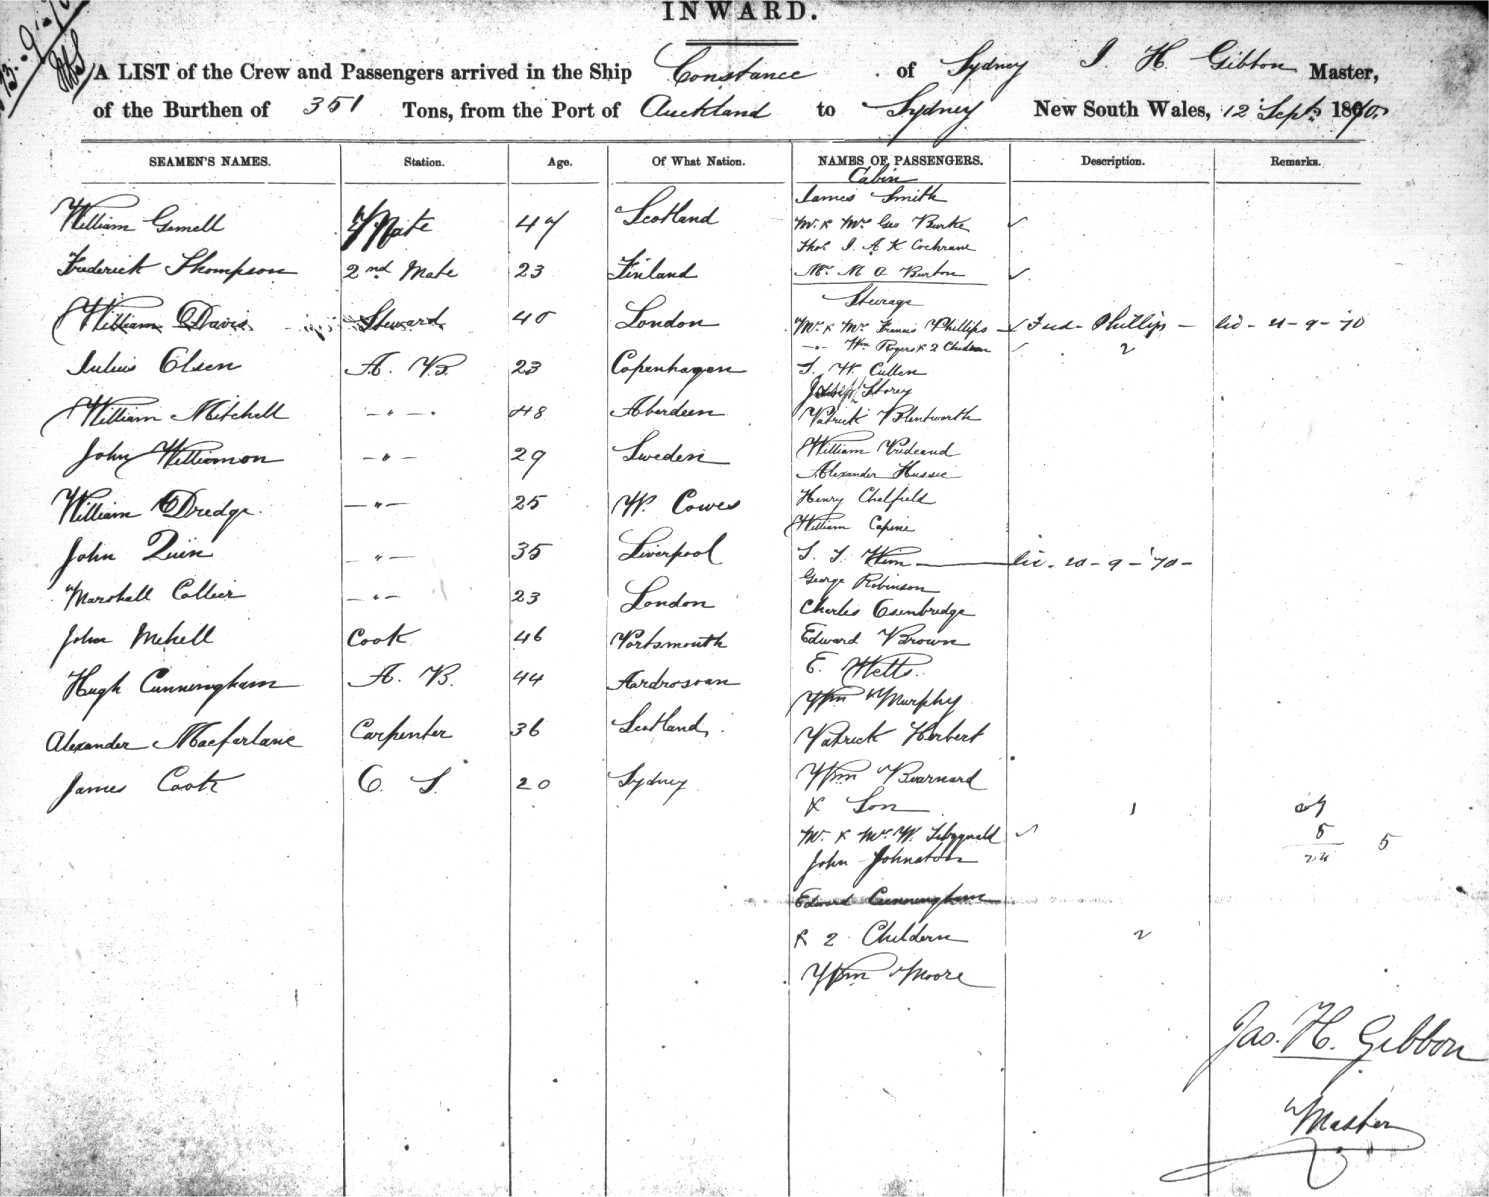 INWARD.
A LIST of the Crew and Passengers arrived in the Ship Constance of Sydney J. H. Gibbon Master,
of the Burthen of 351 Tons, from the Port of Auckland to Sydney New South Wales, 12 Sept 1870
SEAMEN'S NAMES. Station. Age. Of What Nation. NAMES OF PASSENGERS. Description. Remarks.
Cabin
James Smith
William Gemell Mate 47 Scotland Mr & Mrs Geo Burke
Thos J. A. K Cochrane
Frederick Thompson 2nd Mate 23 Finland Mrs M A Burton
Steerage
William Davis Steward 40 London Mr & Mrs Francis Phillips Fred Phillips 21-9-70
-"- Wm Rogers & 2 Children 2
Julius Olsen A. B. 23 Copenhagen J. W. Cullen
Joseph Storey
William Mitchell -"- 48 Aberdeen Patrick Blentworth
John Williamson -"- 29 Sweden William
Alexander Hussie
William Dredge -"- 25 W. Cowes Henry Chelfield
William Capine
John Quin -"- 35 Liverpool 21-9-'70-
George Robinson
Marshall Collier -"- 23 London Charles Osenbredge
John Mehell Cook 46 Portsmouth Edward Brown
Hugh Cunningham A. B. 44 Ardrossan E. Wetts
Wm Murphy
Alexander Macfarlane Carpenter 36 Scotland Patrick Herbert
James Cook O. S. 20 Sydney Wm Barnard
& Son 1
Mr & Mrs W. 5 5
John Johnston 24
Edward Cunningham
& 2 Childern 2
Wm Moore
Jas. H. Gibbon
Master